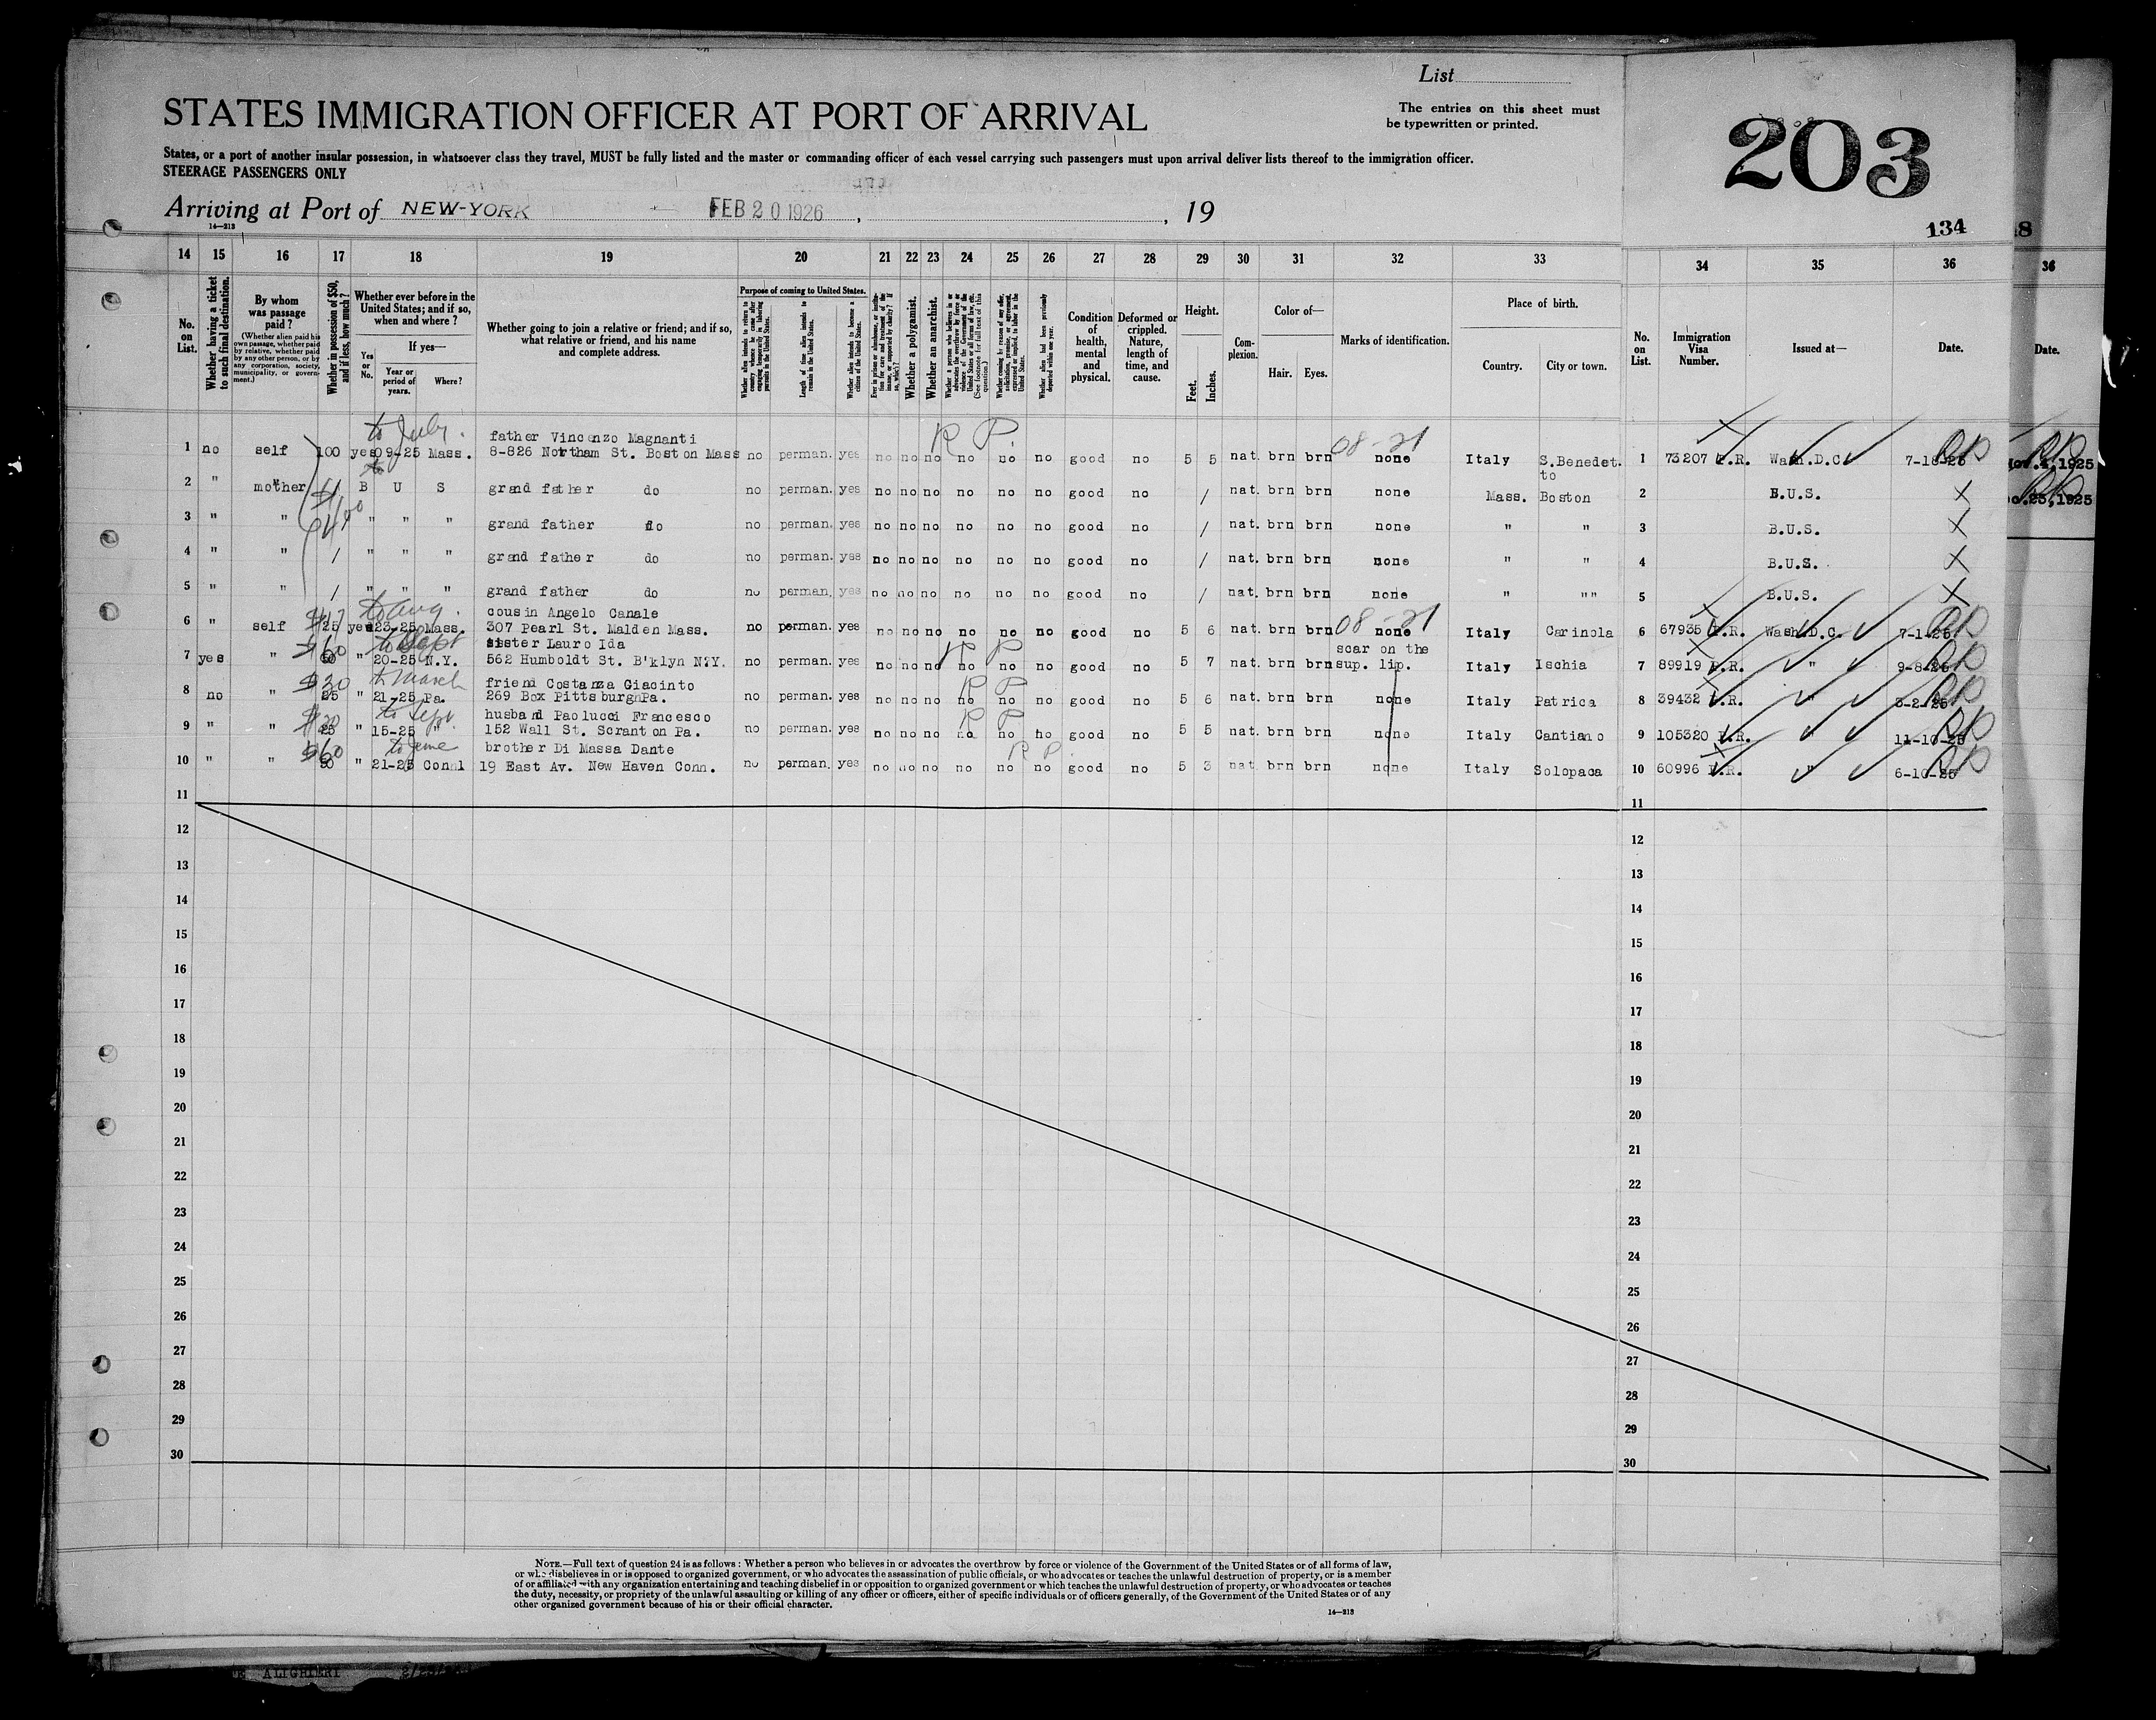 List
STATES IMMIGRATION OFFICER AT PORT OF ARRIVAL
The entries on this sheet must
be typewritten or printed.
203
States, or a port of another insular possession, in whatsoever class they travel, MUST be fully listed and the master or commanding officer of each vessel carrying such passengers must upon arrival deliver lists thereof to the immigration officer.
STEERAGE PASSENGERS ONLY
Arriving at Port of NEW-YORK FEB 20 1926, , 19
14—213
134
14 15 16 17 18 19 20 21 22 23 24 25 26 27 28 29 30 31 32 33 34 35 36 36
No. on List.
Whether having a ticket to such final destination.
By whom was passage paid?
(Whether alien paid his own passage, whether paid by relative, whether paid by any other person, or by any corporation, society, municipality, or government.)
Whether in possession of $50, and if less, how much?
Whether ever before in the United States; and if so, when and where?
If yes—
Yes or No.
Year or period of years.
Where?
Whether going to join a relative or friend; and if so, what relative or friend, and his name and complete address.
Purpose of coming to United States.
Length of time alien intends to remain in the United States.
Whether alien intends to become a citizen of the United States.
Whether a polygamist.
Whether an anarchist.
Condition of health, mental and physical.
Deformed or crippled. Nature, length of time, and cause.
Height.
Feet. Inches.
Complexion.
Color of—
Hair. Eyes.
Marks of identification.
Place of birth.
Country. City or town.
No. on List.
Immigration Visa Number.
Issued at—
Date.
Date.
to July. R P. 08-21
father Vincenzo Magnanti
1 no self 100 yes 09-25 Mass. 8-826 Northam St. Boston Mass no perman. yes no no no no no no good no 5 5 nat. brn brn none Italy S.Benedetto 1 73207 P.R. Wash.D.C. 7-18-25
2 " mother B U S grand father do no perman. yes no no no no no no good no / nat. brn brn none Mass. Boston 2 B.U.S. X
3 " " " " " grand father do no perman. yes no no no no no no good no / nat. brn brn none " " 3 B.U.S. X
4 " " / " " " grand father do no perman. yes no no no no no no good no / nat. brn brn none " " 4 B.U.S. X
5 " " / " " " grand father do no perman. yes no no no no no no good no / nat. brn brn none " "" 5 B.U.S. X
to Aug. cousin Angelo Canale 08-21
6 " self 25 yes 23-25 Mass. 307 Pearl St. Malden Mass. no perman. yes no no no no no no good no 5 6 nat. brn brn none Italy Carinola 6 67935 P.R. Wash.D.C. 7-1-25
$60 to Sept sister Lauro Ida R P scar on the
7 yes " 50 " 20-25 N.Y. 562 Humboldt St. B'klyn N.Y. no perman. yes no no no no no no good no 5 7 nat. brn brn sup. lip. Italy Ischia 7 89919 P.R. " 9-8-25
$30 to March friend Costanza Giacinto R P
8 no " 25 " 21-25 Pa. 269 Box Pittsburgh Pa. no perman. yes no no no no no no good no 5 6 nat. brn brn none Italy Patrica 8 39432 P.R. " 3-2-25
to Sept. husband Paolucci Francesco R P
9 " " 25 " 15-25 " 152 Wall St. Scranton Pa. no perman. yes no no no no no no good no 5 5 nat. brn brn none Italy Cantiano 9 105320 P.R. " 11-10-25
$60 to June brother Di Massa Dante R P.
10 " " 50 " 21-25 Conn 19 East Av. New Haven Conn. no perman. yes no no no no no no good no 5 3 nat. brn brn none Italy Solopaca 10 60996 P.R. " 6-10-25
11 11
12 12
13 13
14 14
15 15
16 16
17 17
18 18
19 19
20 20
21 21
22 22
23 23
24 24
25 25
26 26
27 27
28 28
29 29
30 30
NOTE.—Full text of question 24 is as follows: Whether a person who believes in or advocates the overthrow by force or violence of the Government of the United States or of all forms of law,
or who disbelieves in or is opposed to organized government, or who advocates the assassination of public officials, or who advocates or teaches the unlawful destruction of property, or is a member
of or affiliated with any organization entertaining and teaching disbelief in or opposition to organized government or which teaches the unlawful destruction of property, or who advocates or teaches
the duty, necessity, or propriety of the unlawful assaulting or killing of any officer or officers, either of specific individuals or of officers generally, of the Government of the United States or of any
other organized government because of his or their official character.
14—213
ALIGHIERI